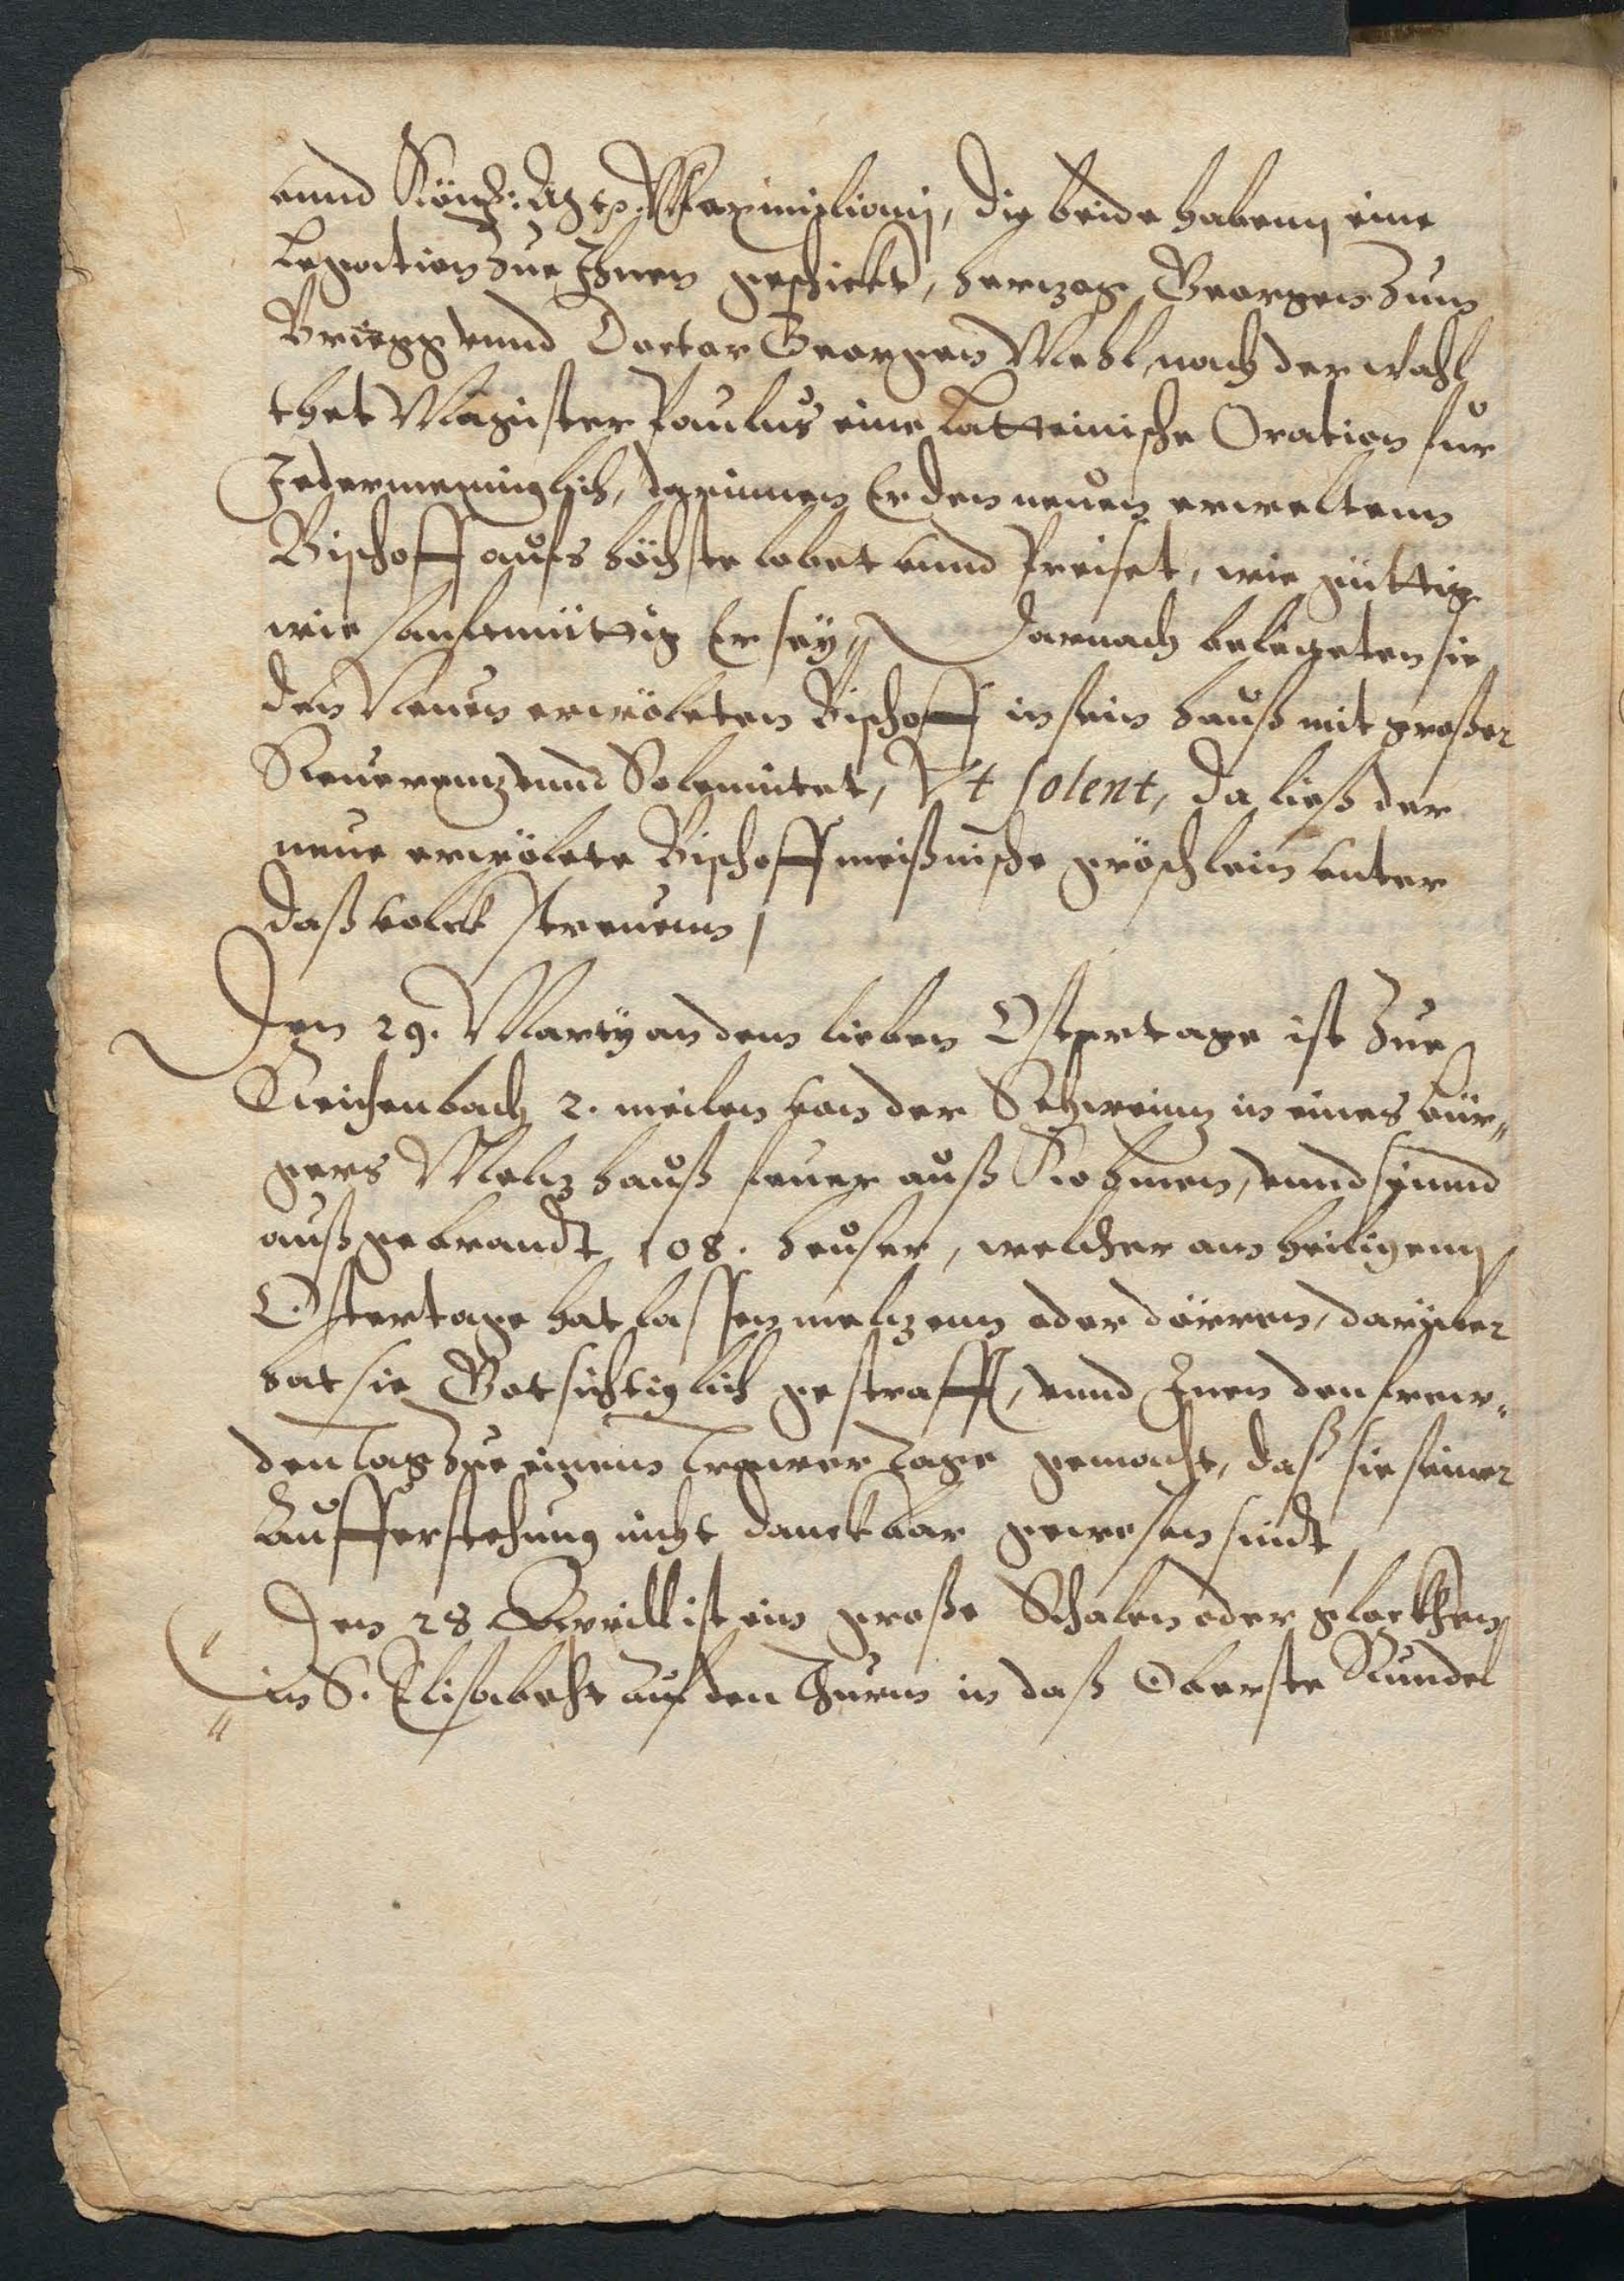 vnnd Könß: Mt: Maximiliani, die beide habenn eine
Legation zue Ihnen geschickt, herzog Georgen zum
Briegg vnnd Doctor Georgen Mehl, nach der wahl
thet Magister Paulus eine Latteinische Oration fur
Jedermenniglich, darinnen Er den neuen erweltenn
Bischoff aufs höchste lobet vnnd Preiset, wie güttig
wie sanftmüttig Er seÿ, Darnach belegeten sie
den Neuen erwöleten Bischoff in sein hauß mit großer
Reuerentz vnnd Solemnitet, Vt solent, da ließ der
neue erwölete Bischoff meißnische gröschlein vnter
daß volck streuenn
Den 29. Martÿ an dem lieben Ostertage ist zue
Reichenbach 2. meilen von der Schweinz in eines bür„
gers Meltzhauß feuer auß Kohmen, vnnd seinnd
außgebrandt 108. heuser, welcher am heiligenn
Ostertage hat lassen meltzenn oder dörren, darÿber
hat sie Got sichtiglich gestrafft, vnnd Inen den freu„
den tag zue einem Trawer Tage gemacht, daß sie seiner
Aufferstehung nicht danckbar gewesen sindt
Den 28 Aprill ist ein große Schalen oder glockhen
in S. Elisabeht auf den Thurm in daß Oberste Rundel